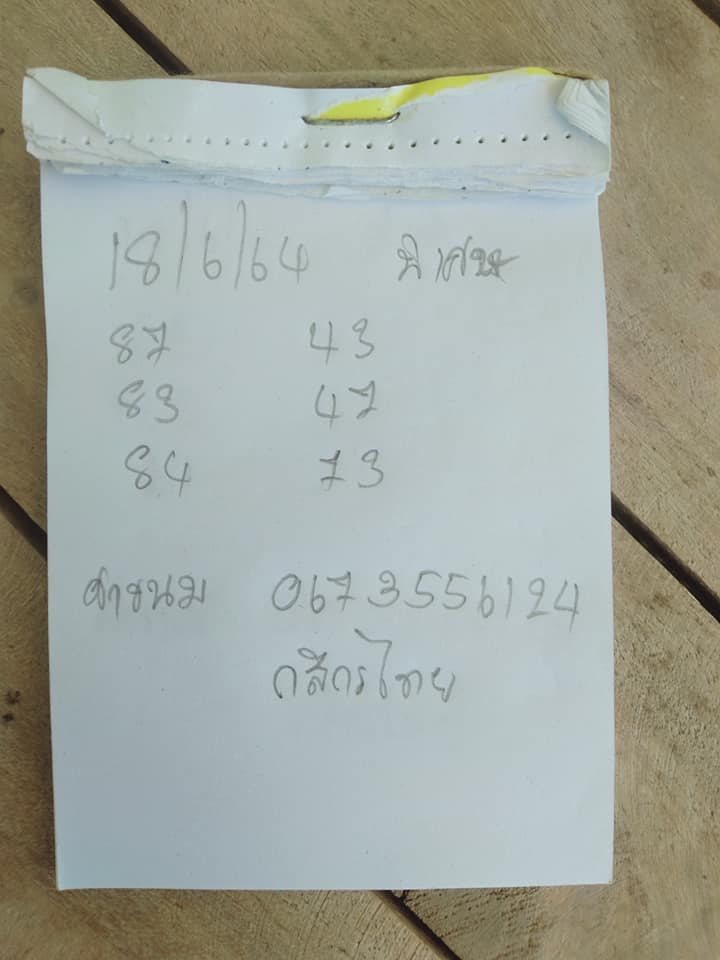 18/6/64 พิเศษ
87 43
83 47
84 73
ค่าขนม 0673556124
กสิกรไทย